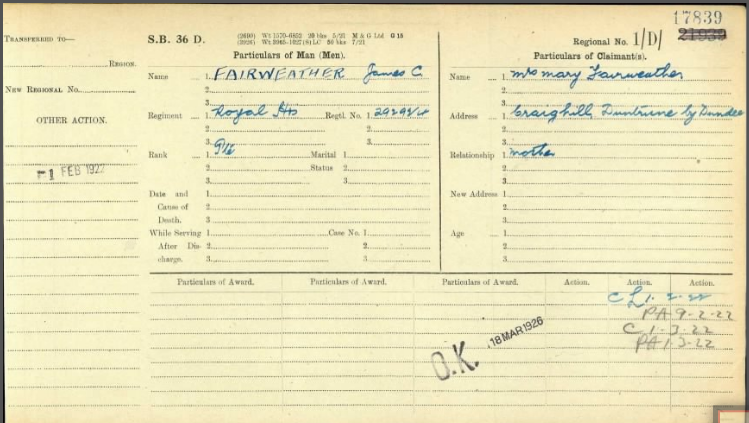 17839
TRANSFERRED TO—
S.B. 36 D.
(2600) Wt 1570-6852 20 bks 5/21 M & G Ltd G 18
Regional No. 1/D/ 21939
REGION.
Particulars of Man (Men).
Particulars of Claimant(s).
NEW REGIONAL No.
Name 1. FAIRWEATHER James C.
Name 1. Mrs Mary Fairweather
2.
2.
3.
3.
OTHER ACTION.
Regiment 1. Royal Hrs Regtl. No. 1.
Address 1. Craighill, Duntrune by Dundee
2. 2.
2.
3. 3.
3.
Rank 1. Marital 1.
Relationship 1. Mother
FEB 1922
2. Status 2.
2.
3. 3.
3.
Date and 1.
New Address 1.
Cause of 2.
2.
Death. 3.
3.
While Serving 1. Case No. 1.
Age 1.
After Dis- 2. 2.
2.
charge. 3. 3.
3.
Particulars of Award. Particulars of Award. Particulars of Award. Action. Action. Action.
1-2-22
PA 9-2-22
C 1-3-22
PA 1-3-22
O.K. 18 MAR 1926